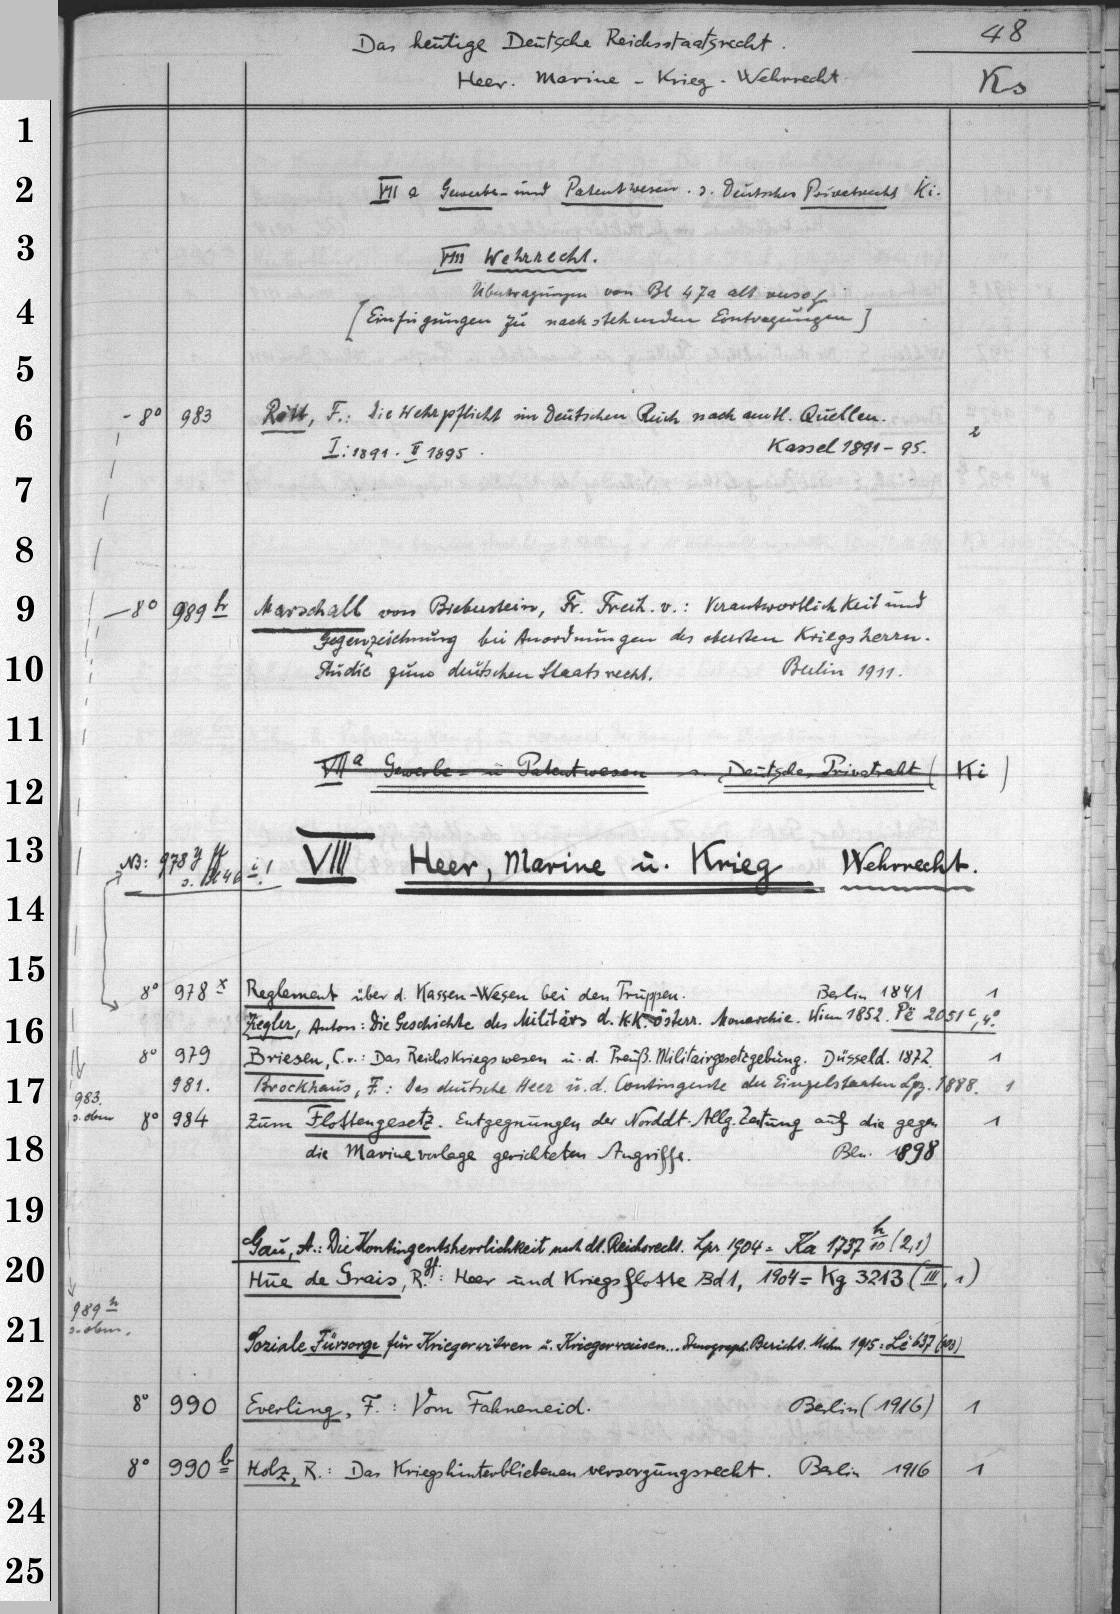 48
Das heutige Deutsche Reichsstaatsrecht.
Heer. Marine - Krieg - Wehrrecht.
Ks
1
2
VII a Gewerbe- und Patentwesen. s. Deutsches Privatrecht Ki.
3
VIII Wehrrecht.
Übertragungen von Bl 47a alt
4
[Einfügungen zu nachstehenden Eintragungen]
5
6
- 8° 983 Rött, F.: Die Wehrpflicht im Deutschen Reich nach amtl. Quellen.
I: 1891. II 1895. Kassel 1891-95. 2
7
8
9
8° 989 h Marschall von Bieberstein, Fr. Freih. v.: Verantwortlichkeit und
Gegenzeichnung bei Anordnungen des obersten Kriegsherrn.
10
Studie zum deutschen Staatsrecht. Berlin 1911.
11
VII a Gewerbe- u Patentwesen s. Deutsches Privatrecht (Ki)
12
13
NB: 978 y ff
s. Bl 46 i !
VIII Heer, Marine u. Krieg Wehrrecht.
14
15
8° 978 x Reglement über d. Kassen-Wesen bei den Truppen. Berlin 1841 1
16
Ziegler, Anton: Die Geschichte des Militärs d. K.K. österr. Monarchie. Wien 1852. Pë 2051 c, 4°
8° 979 Briesen, C. v.: Das Reichskriegswesen u. d. Preuß. Militairgesetzgebung. Düsseld. 1872. 1
17
981. Brockhaus, F.: Das deutsche Heer u. d. Contingente der Einzelstaaten Lpz. 1888. 1
983.
s. oben
8° 984 Zum Flottengesetz. Entgegnungen der Norddt. Allg. Zeitung auf die gegen 1
18
die Marinevorlage gerichteten Angriffe. Bln. 1898
19
Gau, A.: Die Kontingentsherrlichkeit nach dt. Reichsrecht. Lpz. 1904 = Ka 1737 h/10 (2,1)
20
Hue de Grais, R. Gf.: Heer und Kriegsflotte Bd 1, 1904 = Kg 3213 (III, 1)
989 h
s. oben.
21
Soziale Fürsorge für Kriegerwitwen u. Kriegerwaisen... Stenograph. Bericht. Mchn 1915: Lë 637
22
8° 990 Everling, F.: Vom Fahneneid. Berlin (1916) 1
23
8° 990 b Holz, R.: Das Kriegshinterbliebenenversorgungsrecht. Berlin 1916 1
24
25